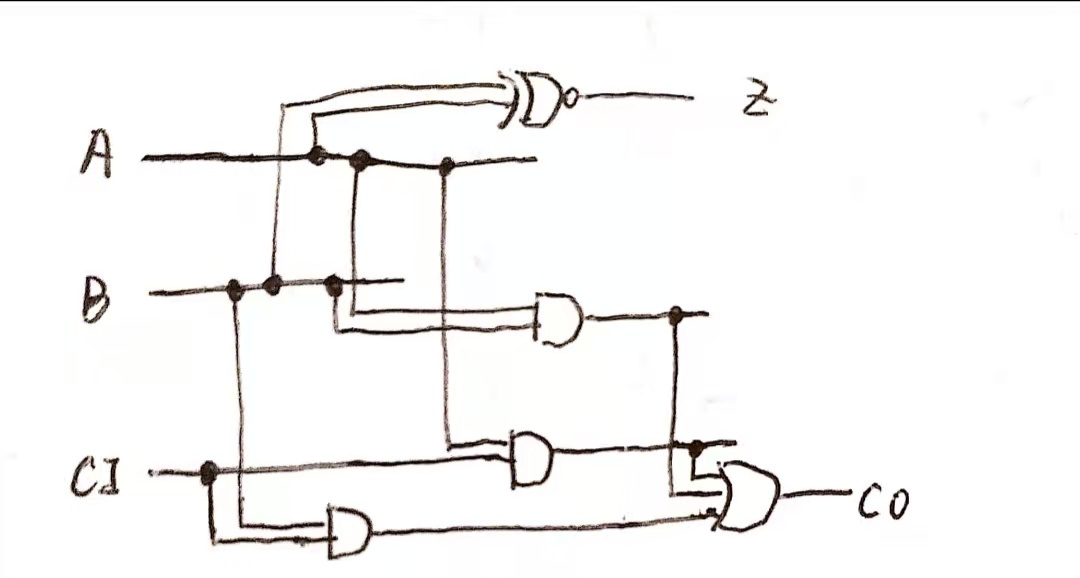 Z
A
B
CI
CO